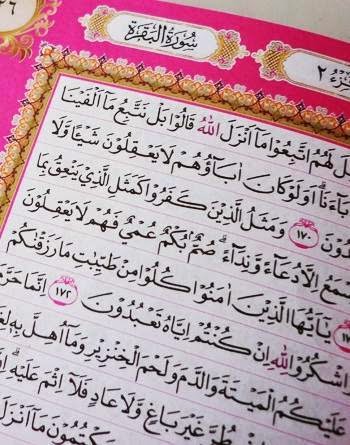 ٢٦
سُوْرَةُ الْبَقَرَةِ
٢
لَهُمُ اتَّبِعُوْا مَآ اَنْزَلَ اللّٰهُ قَالُوْا بَلْ نَتَّبِعُ مَآ اَلْفَيْنَا
اٰبَاۤءَنَا ۗ اَوَلَوْ كَانَ اٰبَاۤؤُهُمْ لَا يَعْقِلُوْنَ شَيْـًٔا وَّلَا
١٧٠ وَمَثَلُ الَّذِيْنَ كَفَرُوْا كَمَثَلِ الَّذِيْ يَنْعِقُ بِمَا
اِلَّا دُعَاۤءً وَّنِدَاۤءً ۗ صُمٌّۢ بُكْمٌ عُمْيٌ فَهُمْ لَا يَعْقِلُوْنَ
يٰٓاَيُّهَا الَّذِيْنَ اٰمَنُوْا كُلُوْا مِنْ طَيِّبٰتِ مَا رَزَقْنٰكُمْ
اشْكُرُوْا لِلّٰهِ اِنْ كُنْتُمْ اِيَّاهُ تَعْبُدُوْنَ ١٧٢ اِنَّمَا حَرَّمَ
عَلَيْكُمُ الْمَيْتَةَ وَالدَّمَ وَلَحْمَ الْخِنْزِيْرِ وَمَآ اُهِلَّ بِهٖ
غَيْرَ بَاغٍ وَّلَا عَادٍ فَلَآ اِثْمَ عَلَيْهِ ۗ
يَكْتُمُوْنَ مَآ اَنْزَلَ